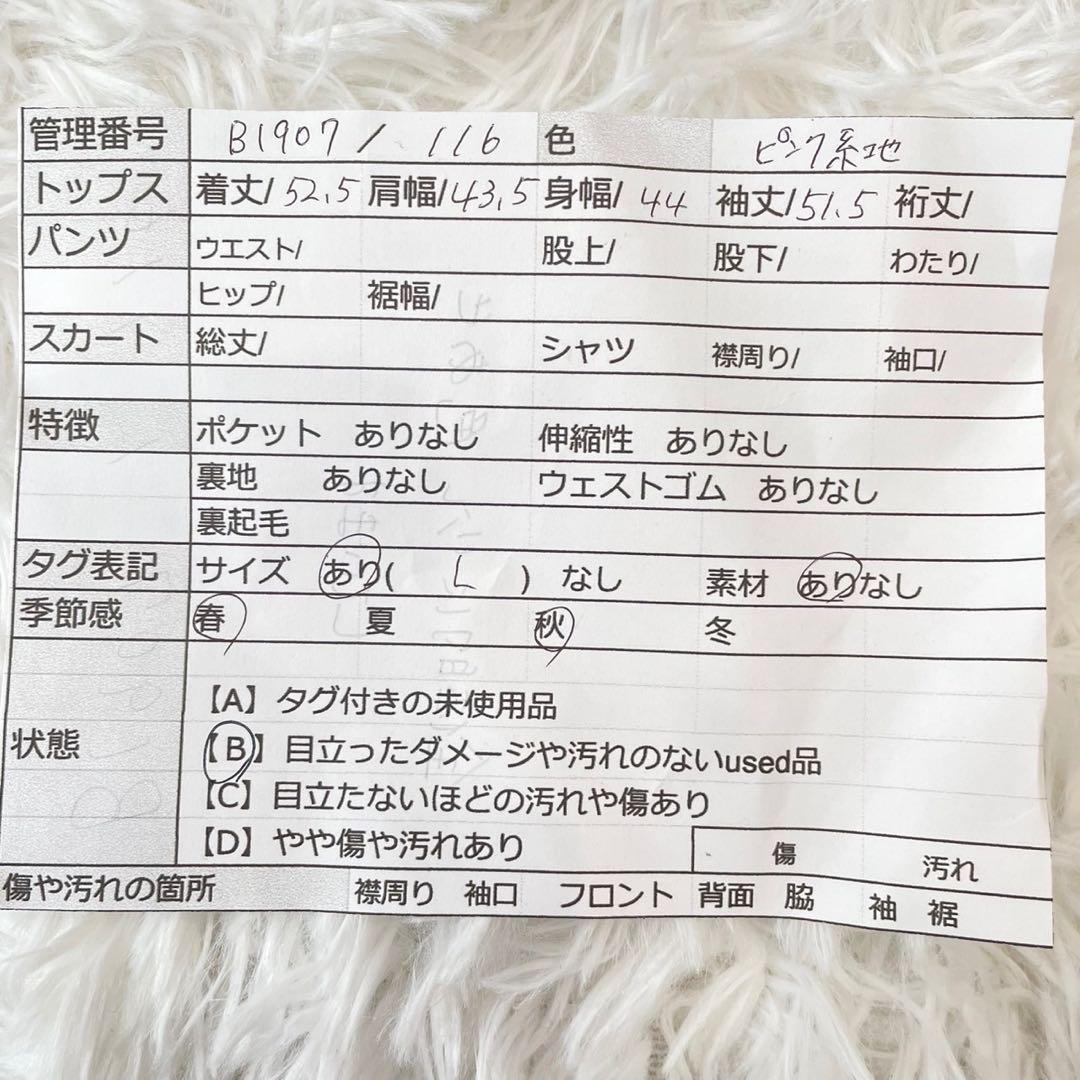 管理番号 B1907 / 116 色 ピンク系地
トップス 着丈/ 52.5 肩幅/ 43.5 身幅/ 44 袖丈/ 51.5 裄丈/
パンツ ウエスト/ 股上/ 股下/ わたり/
ヒップ/ 裾幅/
スカート 総丈/ シャツ 襟周り/ 袖口/
特徴 ポケット ありなし 伸縮性 ありなし
裏地 ありなし ウェストゴム ありなし
裏起毛
タグ表記 サイズ あり( L ) なし 素材 ありなし
季節感 春 夏 秋 冬
【A】タグ付きの未使用品
状態 【B】目立ったダメージや汚れのないused品
【C】目立たないほどの汚れや傷あり
【D】やや傷や汚れあり 傷 汚れ
傷や汚れの箇所 襟周り 袖口 フロント 背面 脇 袖 裾